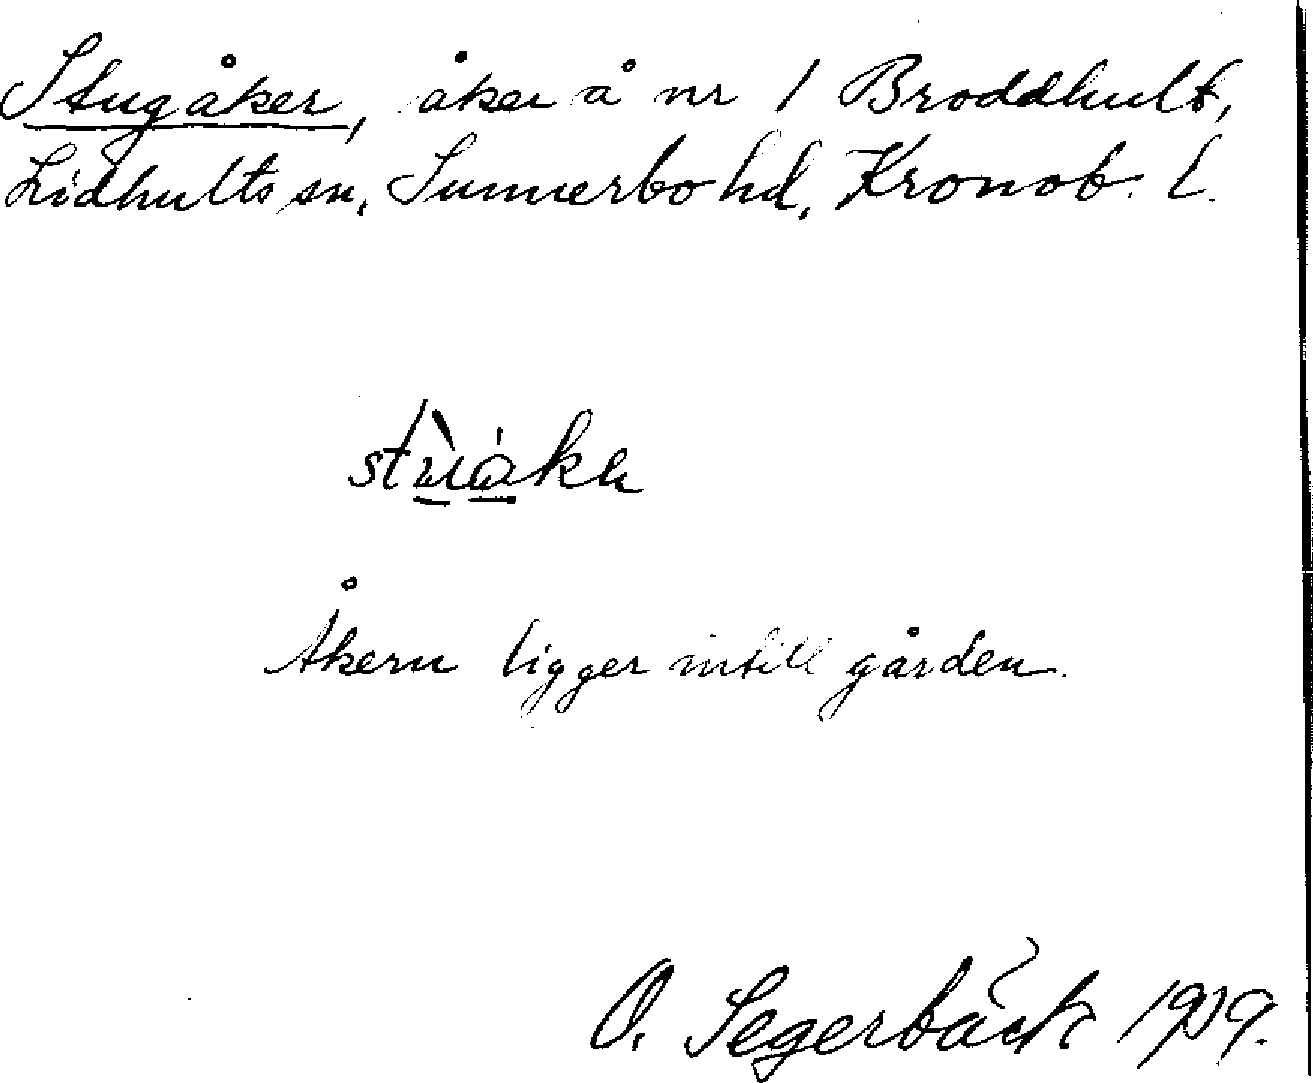 Stugåker, åker å nr 1 Broddhult,
Lidhults sn, Sunnerbo hd, Kronob. L.
Åkern ligger intill gården.
O. Segerbäck